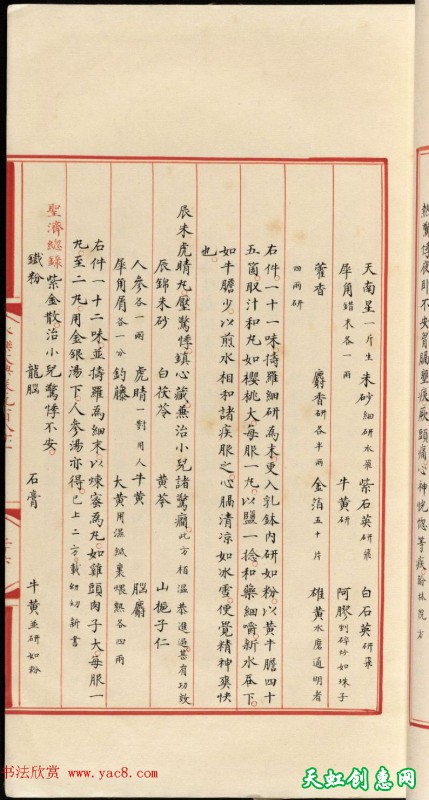 熱驚悸夜卧不安胷膈壅痰厥頭痛心神恍惚等疾翰林院方
天南星一片生 朱砂細研水飛 紫石英研飛 白石英研飛
犀角鎊末各一兩 牛黄研 阿膠剉碎炒如珠子
藿香 麝香研各半兩 金箔五十片 雄黄水磨通明者
四兩研
右件一十一味擣羅細研為末更入乳鉢内研如粉以黄牛膽四十
五箇取汁和丸如櫻桃大每服一丸以鹽一捻和藥細嚼新水吞下
如牛膽少以煎水相和諸疾服之心膈清凉如冰雪便覺精神爽快
也
辰朱虎睛丸壓驚悸鎮心藏兼治小兒諸驚癇此方栢温恭進過甚有功效
辰錦朱砂 白茯苓 黄芩 山梔子仁
人參各一兩 虎睛一對用人 牛黄 腦麝
犀角屑各一分 鈎藤 大黄用濕紙裹煨熟各四兩
右件一十二味並擣羅為細末以煉蜜為丸如雞頭肉子大每服一
丸至二丸用金銀湯下人參湯亦得已上二方載幼幼新書
聖濟總錄 紫金散治小兒驚悸不安
鐵粉 龍腦 石膏 牛黄並研如粉
书法欣赏 www.yac8.com
天虹创惠网